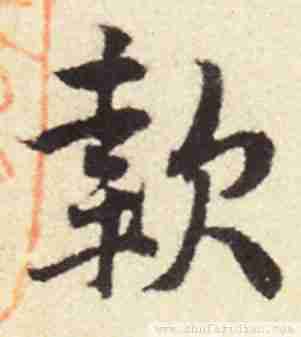 款
www.shufazidian.com